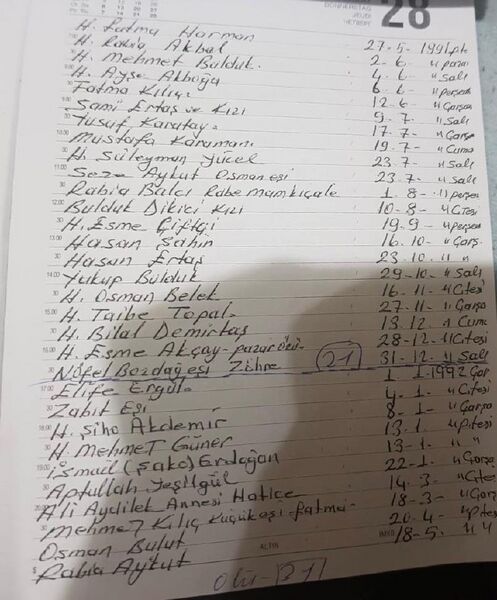 DONNERSTAG
JEUDI
28
H. Fatma Harman 27-5-1991 pte
H. Rabia Akbal 2-6 " pazar
H. Mehmet Bulduk. 4-6 " Salı
H. Ayşe Akboğa 6-6 " perşem
Fatma Kılıç 12-6 " Çarşa
Sami Ertaş ve Kızı 9-7- " Salı
Yusuf Karatay 17-7- " Çarşa
Mustafa Karaman 19-7- " Cuma
H. Süleyman Yücel 23-7- " Salı
Seze Aykut Osman eşi 23-7- " Salı
Rabia Balcı Rabe mamkıçale 1-8- " perşem
Bulduk Dikici Kızı 10-8- " Ctesi
H. Esme Çiftçi 19-9- " perşem
Hasan Şahin 16-10- " Çarş.
Hasan Ertaş 23-10- " "
Yukup Bulduk 29-10- " Salı
H. Osman Belek 16-11- " Ctesi
H. Taibe Topal- 27-11- " Çarşa
H. Bilal Demirtaş 13-12- " Cuma
H. Esme Akçay - pazarönü 28-12- " Ctesi
Nofel Bozdağ eşi Zehre 21 31-12- " Salı
Elife Ergül- 1-1-1992 Çar
Zabit Eşi 4-1- " Ctesi
H. Şiho Akdemir 8-1- " Çarşa
H. Mehmet Güner 13-1- " Ptesi
İsmail (Şako) Erdoğan 13-1- " "
Aptullah Yeşilgül 22-1- " Çarşa
Ali Aydilek Annesi Hatice 14-3- " Ctesi
Mehmet Kılıç Küçükeşi-Fatma 18-3- " Çarşa
Osman Bulut 20-4- " Ptesi
Rabia Aykut 18-5- " "